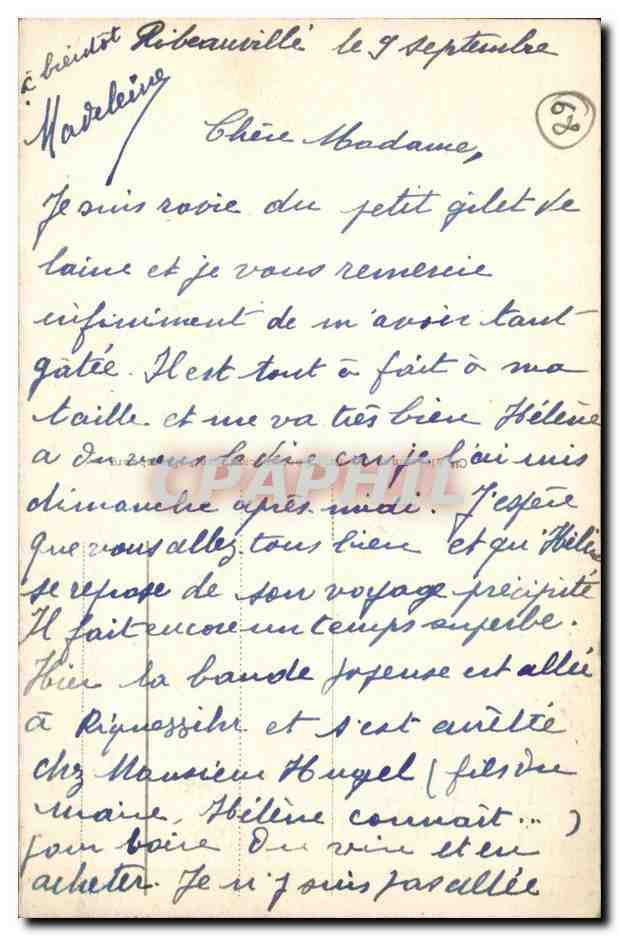 à bientôt
Madeleine
Ribeauvillé le 9 septembre
69
Chère Madame,
Je suis ravie du petit gilet de
laine et je vous remercie
infiniment de m'avoir tant
gâtée. Il est tout à fait à ma
taille et me va très bien Hélène
a du vous le dire car je l'ai mis
CPAPHIL
dimanche après midi. J'espère
que vous allez tous bien et qu'Hélène
se repose de son voyage précipité
Il fait encore un temps superbe.
Hier la bande joyeuse est allée
à Riquewihr et s'est arrêtée
chez Monsieur Hugel (fils du
maire, Hélène connaît...)
pour boire du vin et en
acheter. Je n'y suis pas allée